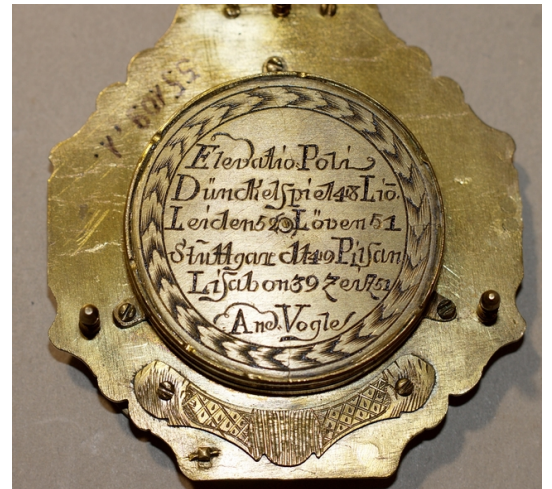 55.109.1.
Elevatio Poli
Dünckelspiel48 Lio.
Leiden52 Löven51
Stuttgardt49 Pilsan
Lisabon39 Zer/51
And. Vogler